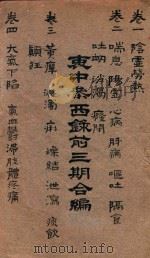 卷一 陰虛勞熱
卷二 喘息 陽虛 心病 肝病 嘔吐 隔食
吐衄 消渴 癃閉
衷中參西錄前三期合編
卷三 黃疸 淋濁 痢 燥結 泄瀉 痰飲
癲狂
卷四 大氣下陷 氣血鬱滯肢體疼痛